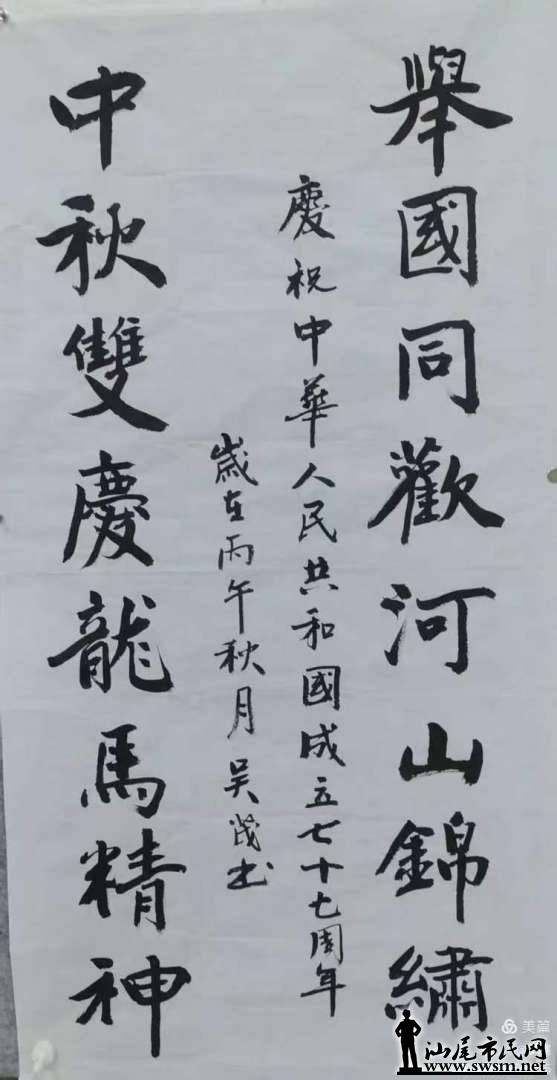 舉國同歡河山錦繡
慶祝中華人民共和國成立七十七周年
歲在丙午秋月吴茂书
中秋雙慶龍馬精神
美篇
汕尾市民网
www.swsm.net